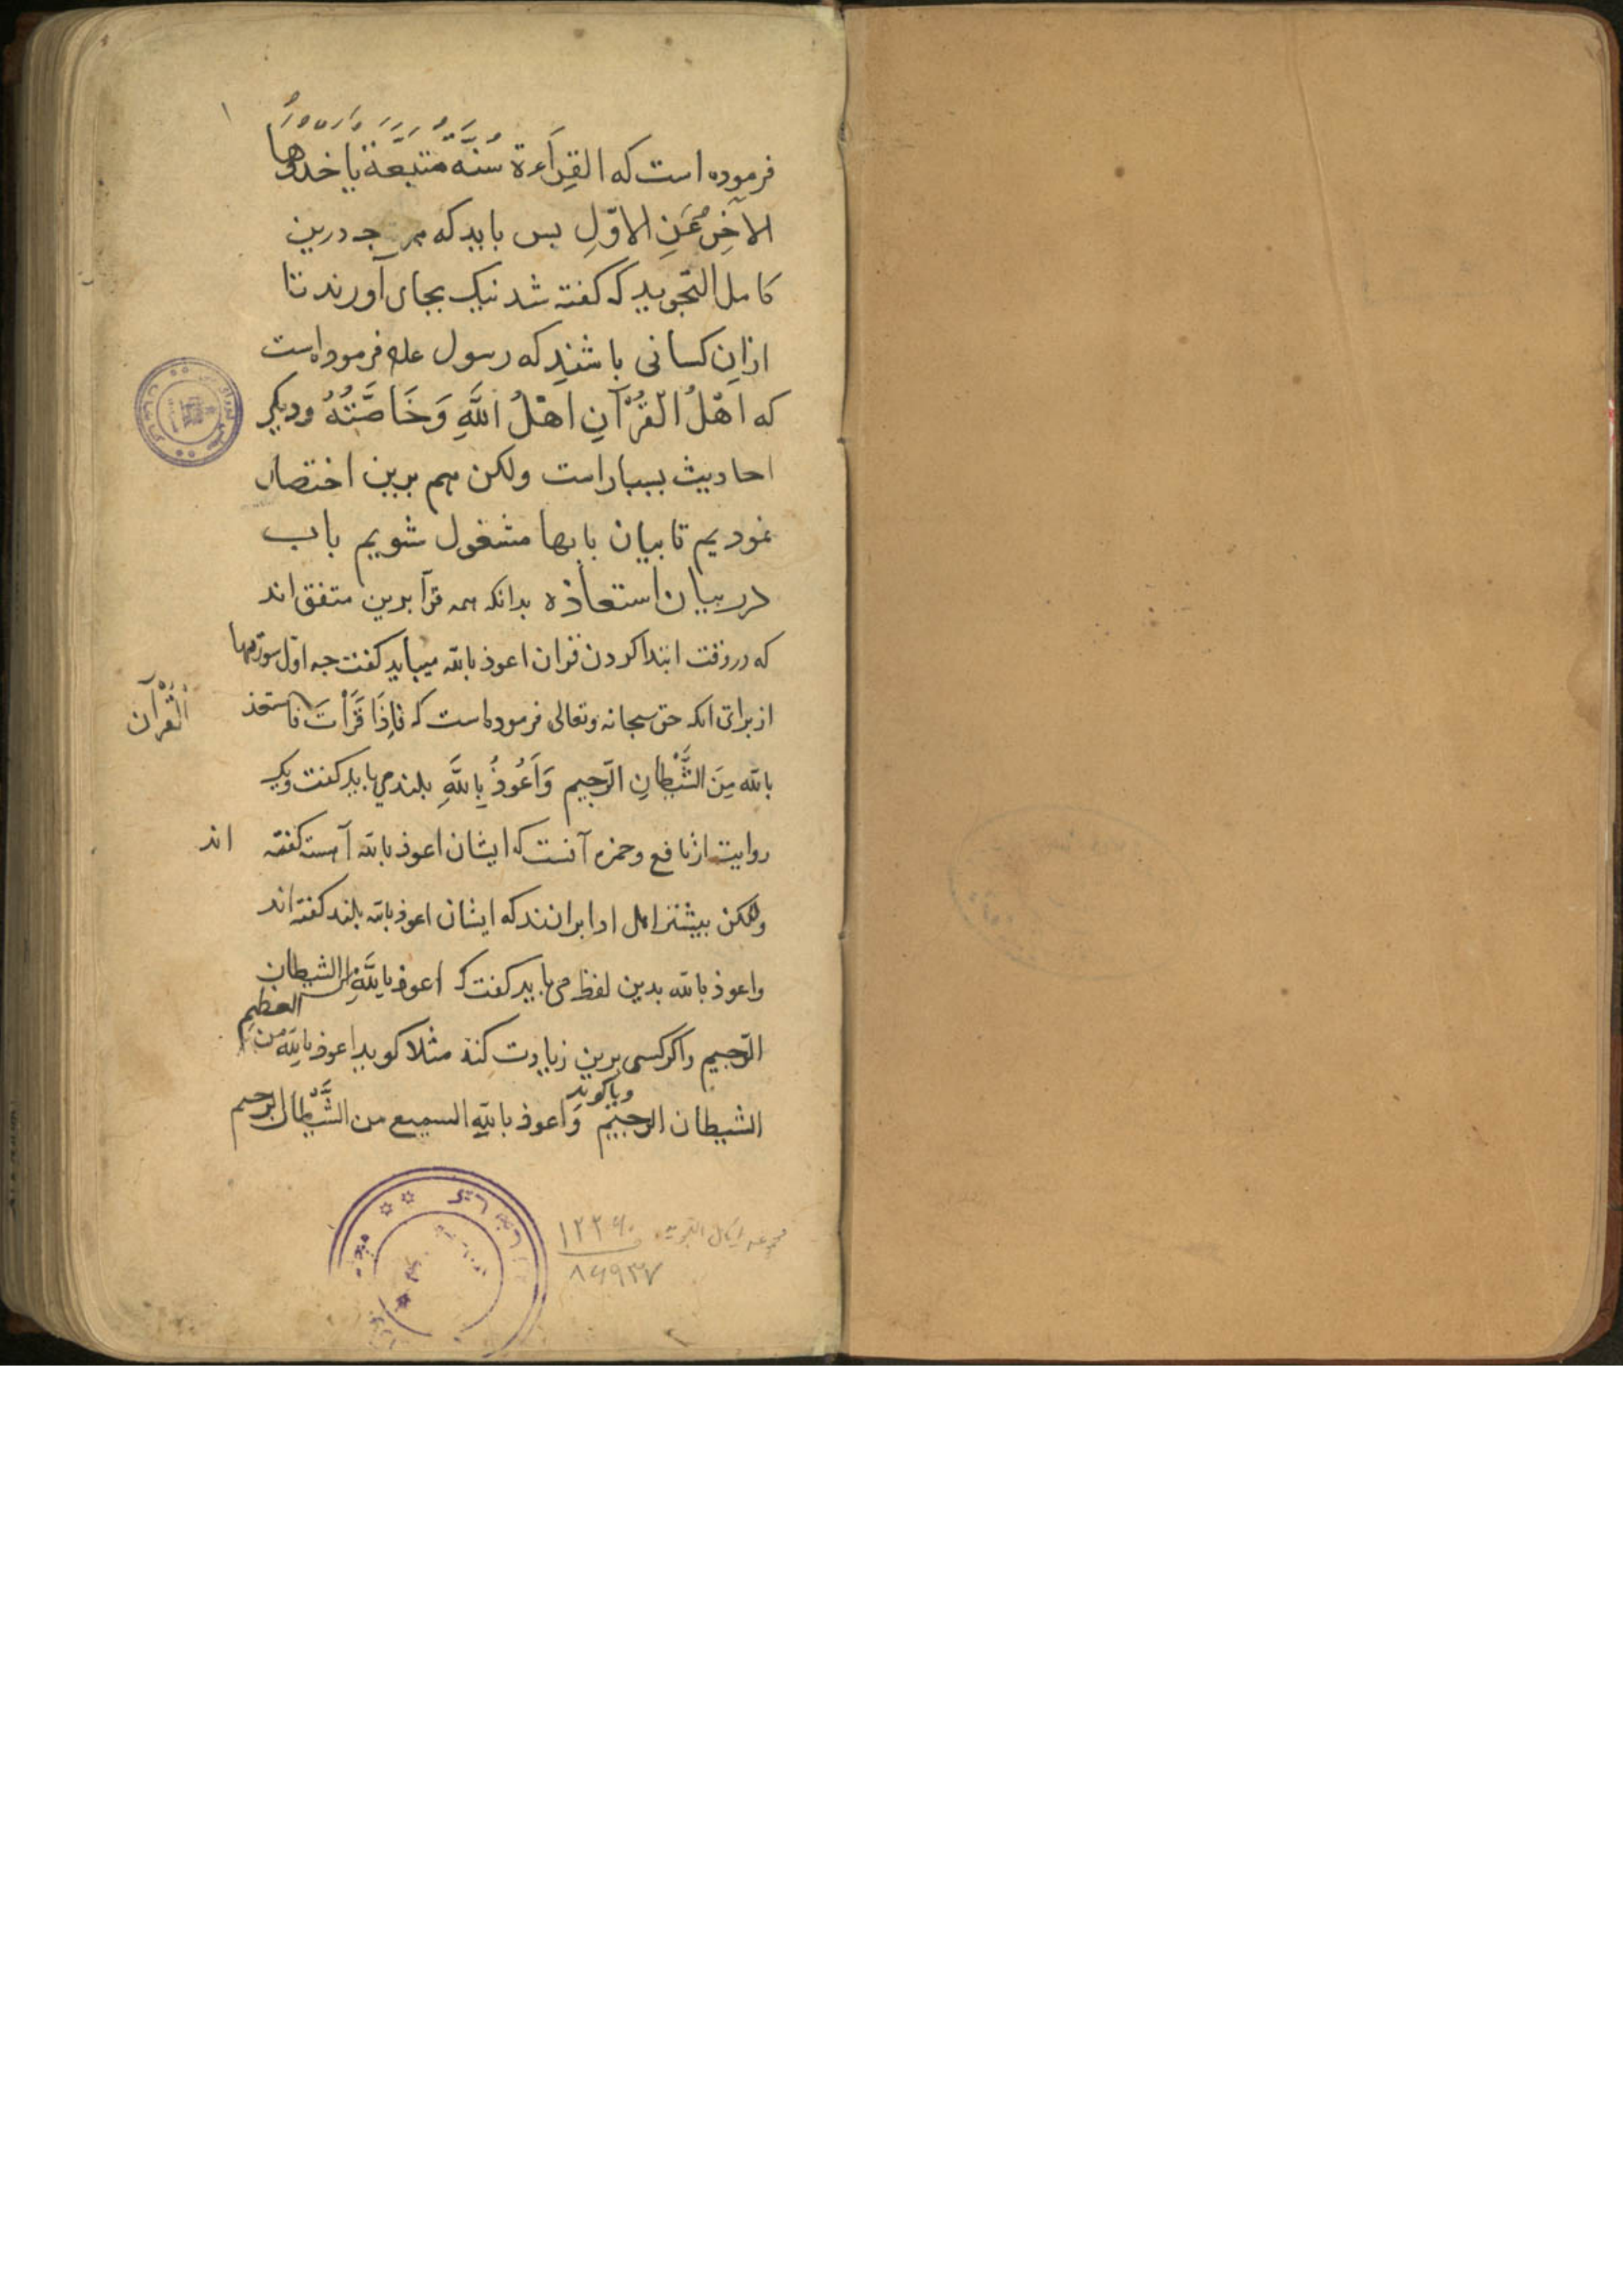 فرموده است که القِرَاءة سُنَّةٌ مُتَّبَعَةٌ یاخذوُها
الآخِرُ عَنِ الاوّلِ بس باید که هر جه درین
کامل التجوید که کفته شد نیک بجای آورند تا
ازان کسانی باشند که رسول علم فرموده است
که اَهْلُ الْقُرْآنِ اَهْلُ اللَّهِ وَخَاصَّتُهُ ودیکر
احادیث بسیار است ولکن هم برین اختصار
نمودیم تا بیان بابها مشغول شویم باب
در بیان استعاذه بدانکه همه قرآ برین متفق اند
که در وقت ابتدا کردن قران اعوذ بالله میباید کفت جه اول سورتها
از برای انکه حق سبحانه وتعالی فرموده است که فَاِذَا قَرَأْتَ فاستعذ
الْقُرْآن
بالله مِنَ الشَّيْطَانِ الرَّجیم وَاَعُوذُ بِاللَّهِ بلند می باید کفت ویک
روایت از نافع وحمزه آنست که ایشان اعوذ بالله آهسته کفته اند
ولکن بیشتر اهل ادا برانند که ایشان اعوذ بالله بلند کفته اند
واعوذ بالله بدین لفظ می باید کفت که اعوذ بِاللَّهِ من الشیطان
الرَّجیم واکر کسی برین زیادت کند مثلا کوید اعوذ بالله العظیم من
الشیطان الرجیم ویا کوید وَاعوذ باللهِ السمیع من الشَّیْطان الرجیم
۱۲۲۶۰
۸۶۹۳۷